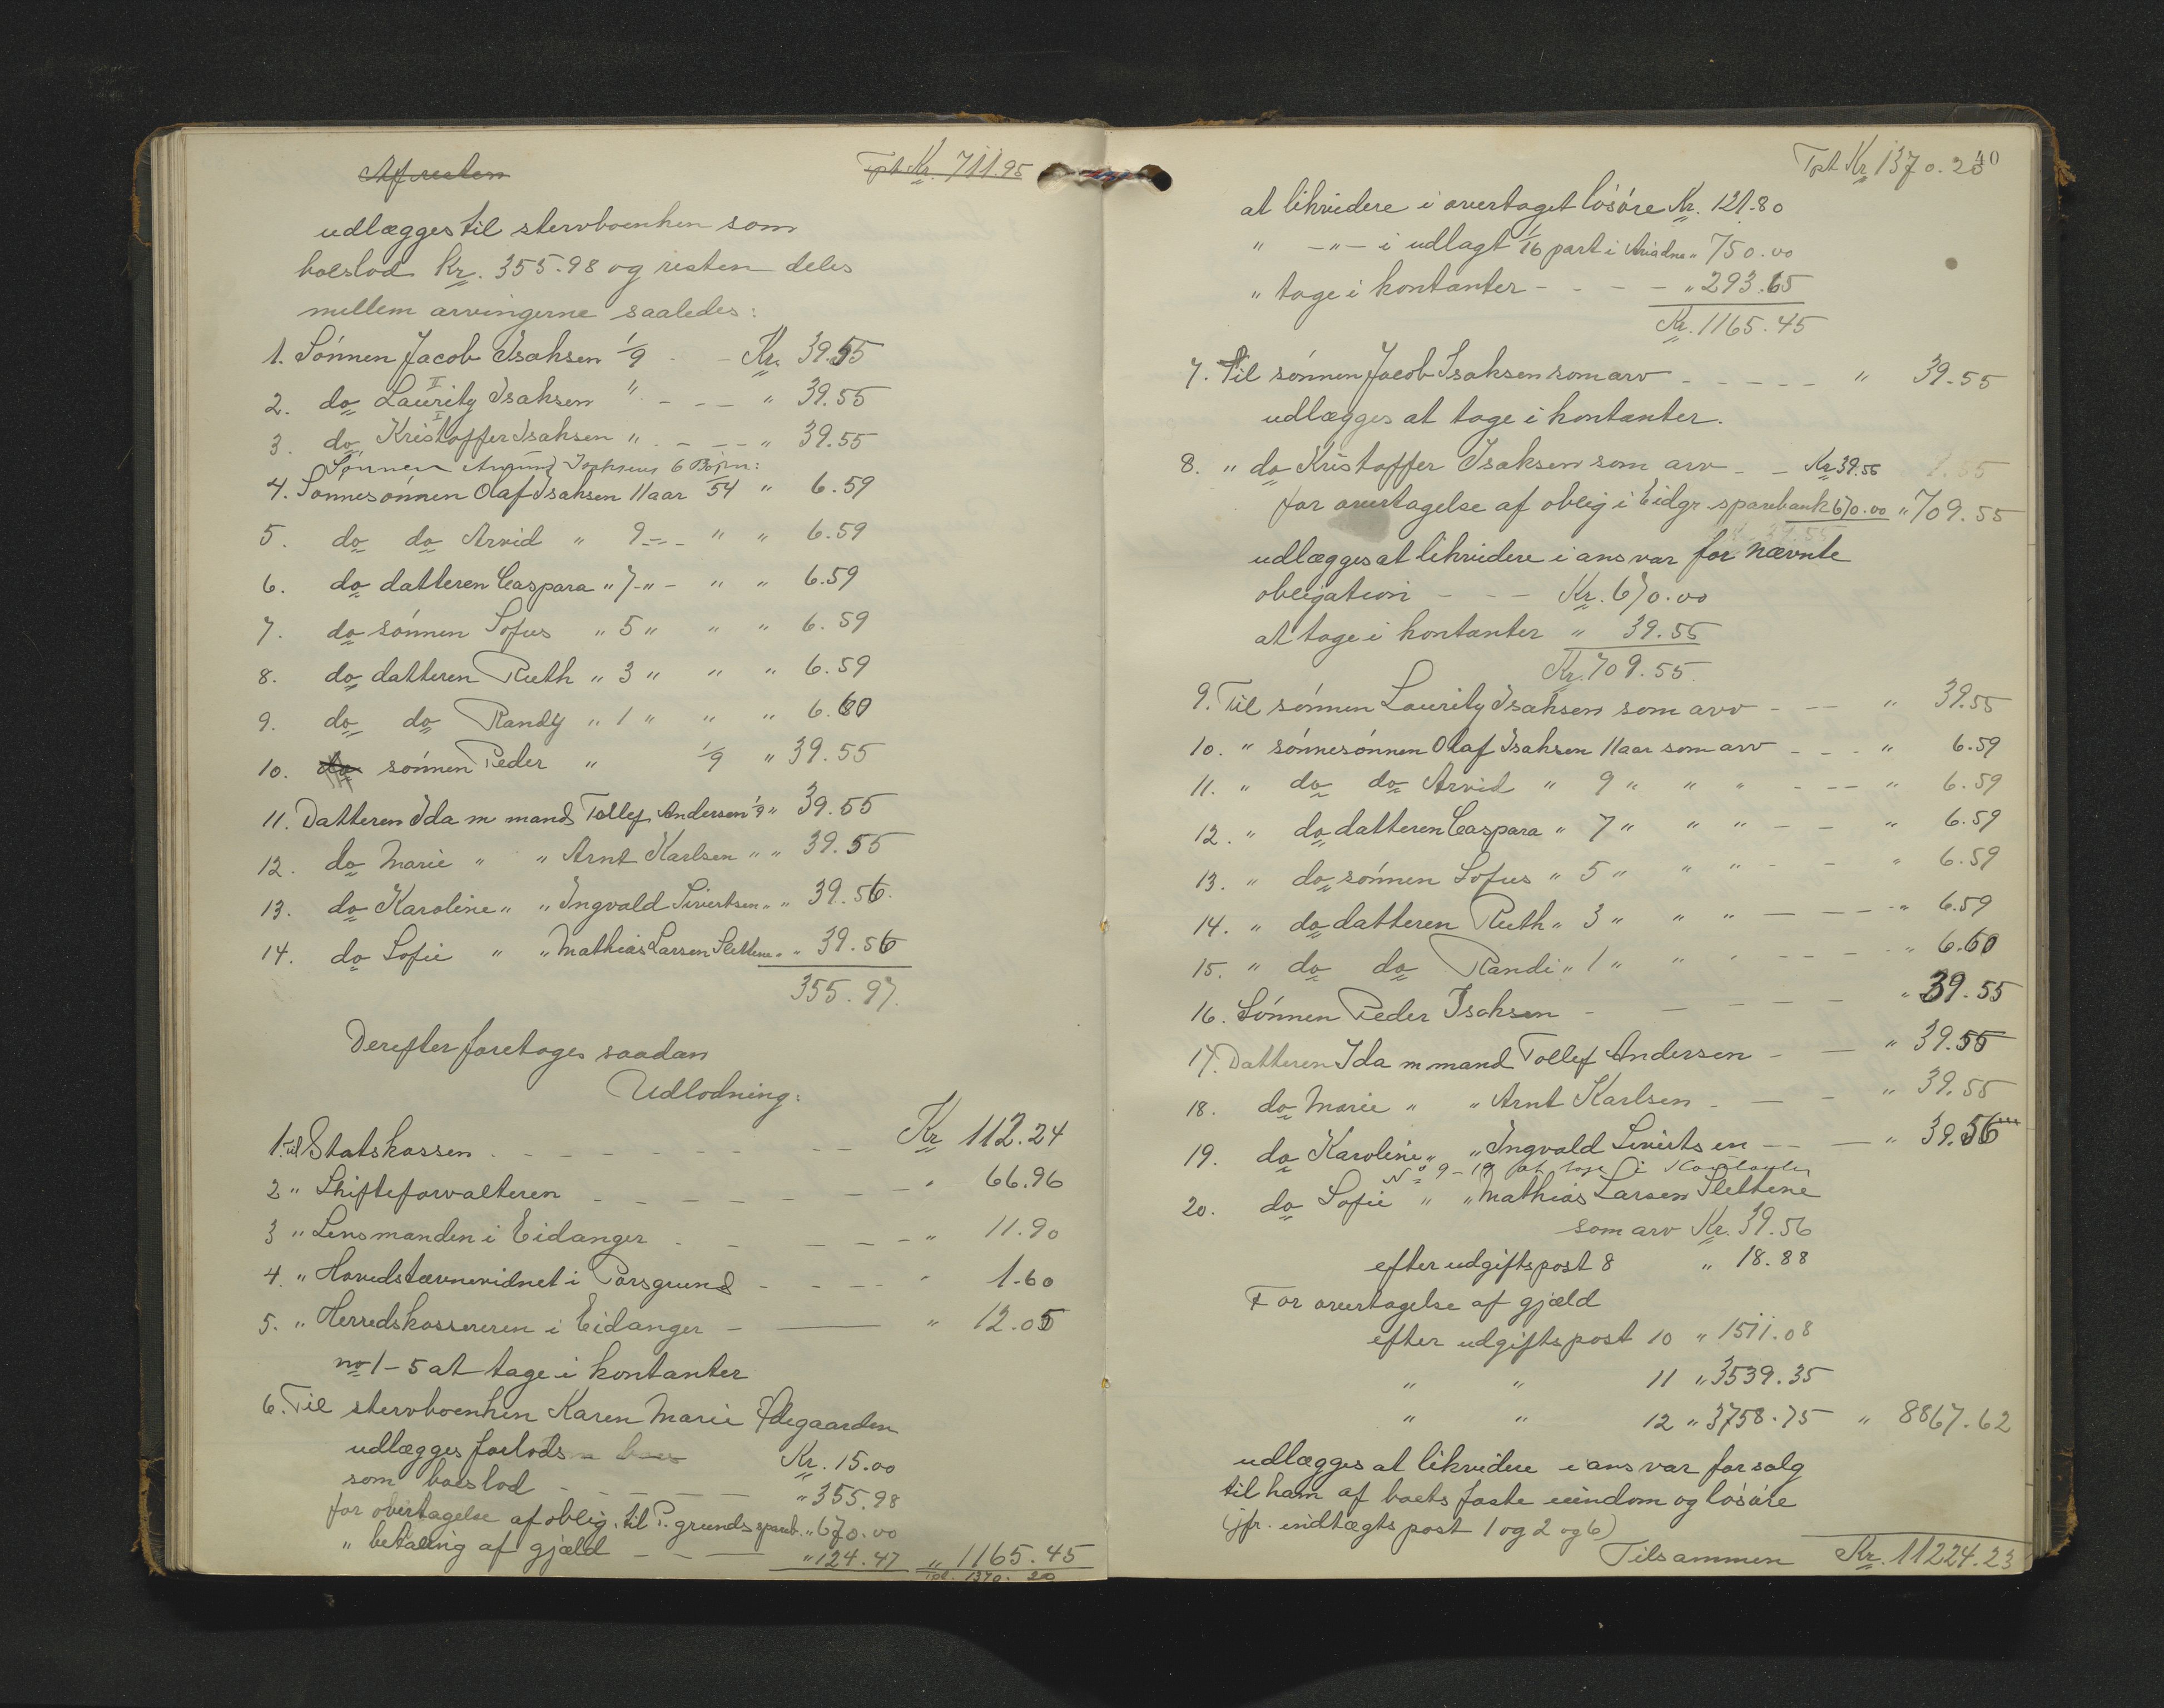 Af resten Tpt Kr. 711.95
udlægges til stervboenken som
boeslod Kr. 355.98 og resten deles
mellem arvingerne saaledes:
1. Sønnen Jacob Isaksen 1/9 - - Kr. 39.55
2. do Lauritz II Isaksen " - - - " 39.55
3. do Kristoffer I Isaksen " - - - - " 39.55
Sønnen Isaksens 6 Børn:
4. Sønnesønnen Olaf Isaksen 11 aar 1/54 " 6.59
5. do do Arvid " 9 - " - " " 6.59
6. do datteren Caspara " 7 - " - " " 6.59
7. do sønnen Sofus " 5 " " " 6.59
8. do datteren Ruth " 3 " " " 6.59
9. do do Randy " 1 " " " 6.60
10. do sønnen Peder " 1/9 " 39.55
11. Datteren Ida m mand Tollef Andersen 1/9 " 39.55
12. do Marie " " Arnt Karlsen " " 39.55
13. do Karoline " " Ingvald Sivertsen " " 39.56
14. do Sofie " " Mathias Larsen Slettene " " 39.56
355.97.
Derefter foretages saadan
Udlodning:
1. til Statskassen - - - - - - - Kr 112.24
2 " Skifteforvalteren - - - - - - - " 66.96
3 " Lensmanden i Eidanger - - - - - - " 11.90
4. " Hovedstævnevidnet i Porsgrund - - - - - " 1.60
5. " Herredskassereren i Eidanger - — " 12.05
no 1-5 at tage i kontanter
6. Til stervboenken Karen Marie Ødegaarden
udlægges forlods Kr. 15.00
som boeslod - - - - - " 355.98
for overtagelse af oblig. til P.grunds spareb. " 670.00
" betaling af gjæld - - — " 124.47 " 1165.45
Tpt. 1370. 20
Tpt Kr 1370.20 40
at likvidere i overtaget løsøre Kr. 121.80
" - " - i udlagt 1/16 part i Ariadne " 750.00
" tage i kontanter - - - - " 293.65
Kr. 1165.45
7. Til sønnen Jacob Isaksen som arv - - - - - " 39.55
udlægges at tage i kontanter.
8. " do Kristoffer Isaksen som arv - - Kr 39.55
for overtagelse af oblig i Eidgr sparebank 670.00 " 709.55
udlægges at likvidere i ansvar for nævnte
obligation - - - Kr. 670.00
at tage i kontanter " 39.55
Kr. 709.55.
9. Til sønnen Lauritz Isaksen som arv - - - " 39.55
10. " sønnesønnen Olaf Isaksen 11 aar som arv - - - " 6.59
11. " do do Arvid " 9 " " " - - - " 6.59
12. " do datteren Caspara " 7 " " " - - " 6.59
13. " do sønnen Sofus " 5 " " " - - " 6.59
14. " do datteren Ruth " 3 " " " - - - - " 6.59
15. " do do Randi " 1 " " " - - - - " 6.60
16. Sønnen Peder Isaksen - - - - - " 39.55
17. Datteren Ida m mand Tollef Andersen - - " 39.55
18. do Marie " " Arnt Karlsen - - - " 39.55
19. do Karoline " " Ingvald Sivertsen - - - " 39.56
No 9 - 19 at tage i Kontanter
20. do Sofie " " Mathias Larsen Slettene
som arv Kr. 39.56
efter udgiftspost 8 " 18.88
For overtagelse af gjæld
efter udgiftspost 10 " 1511.08
" " 11 " 3539.35
" " 12 " 3758.75 " 8867.62
udlægges at likvidere i ansvar for salg
til ham af boets faste eiendom og løsøre
(jfr. indtægts post 1 og 2 og 6)
Tilsammen Kr. 11224.23